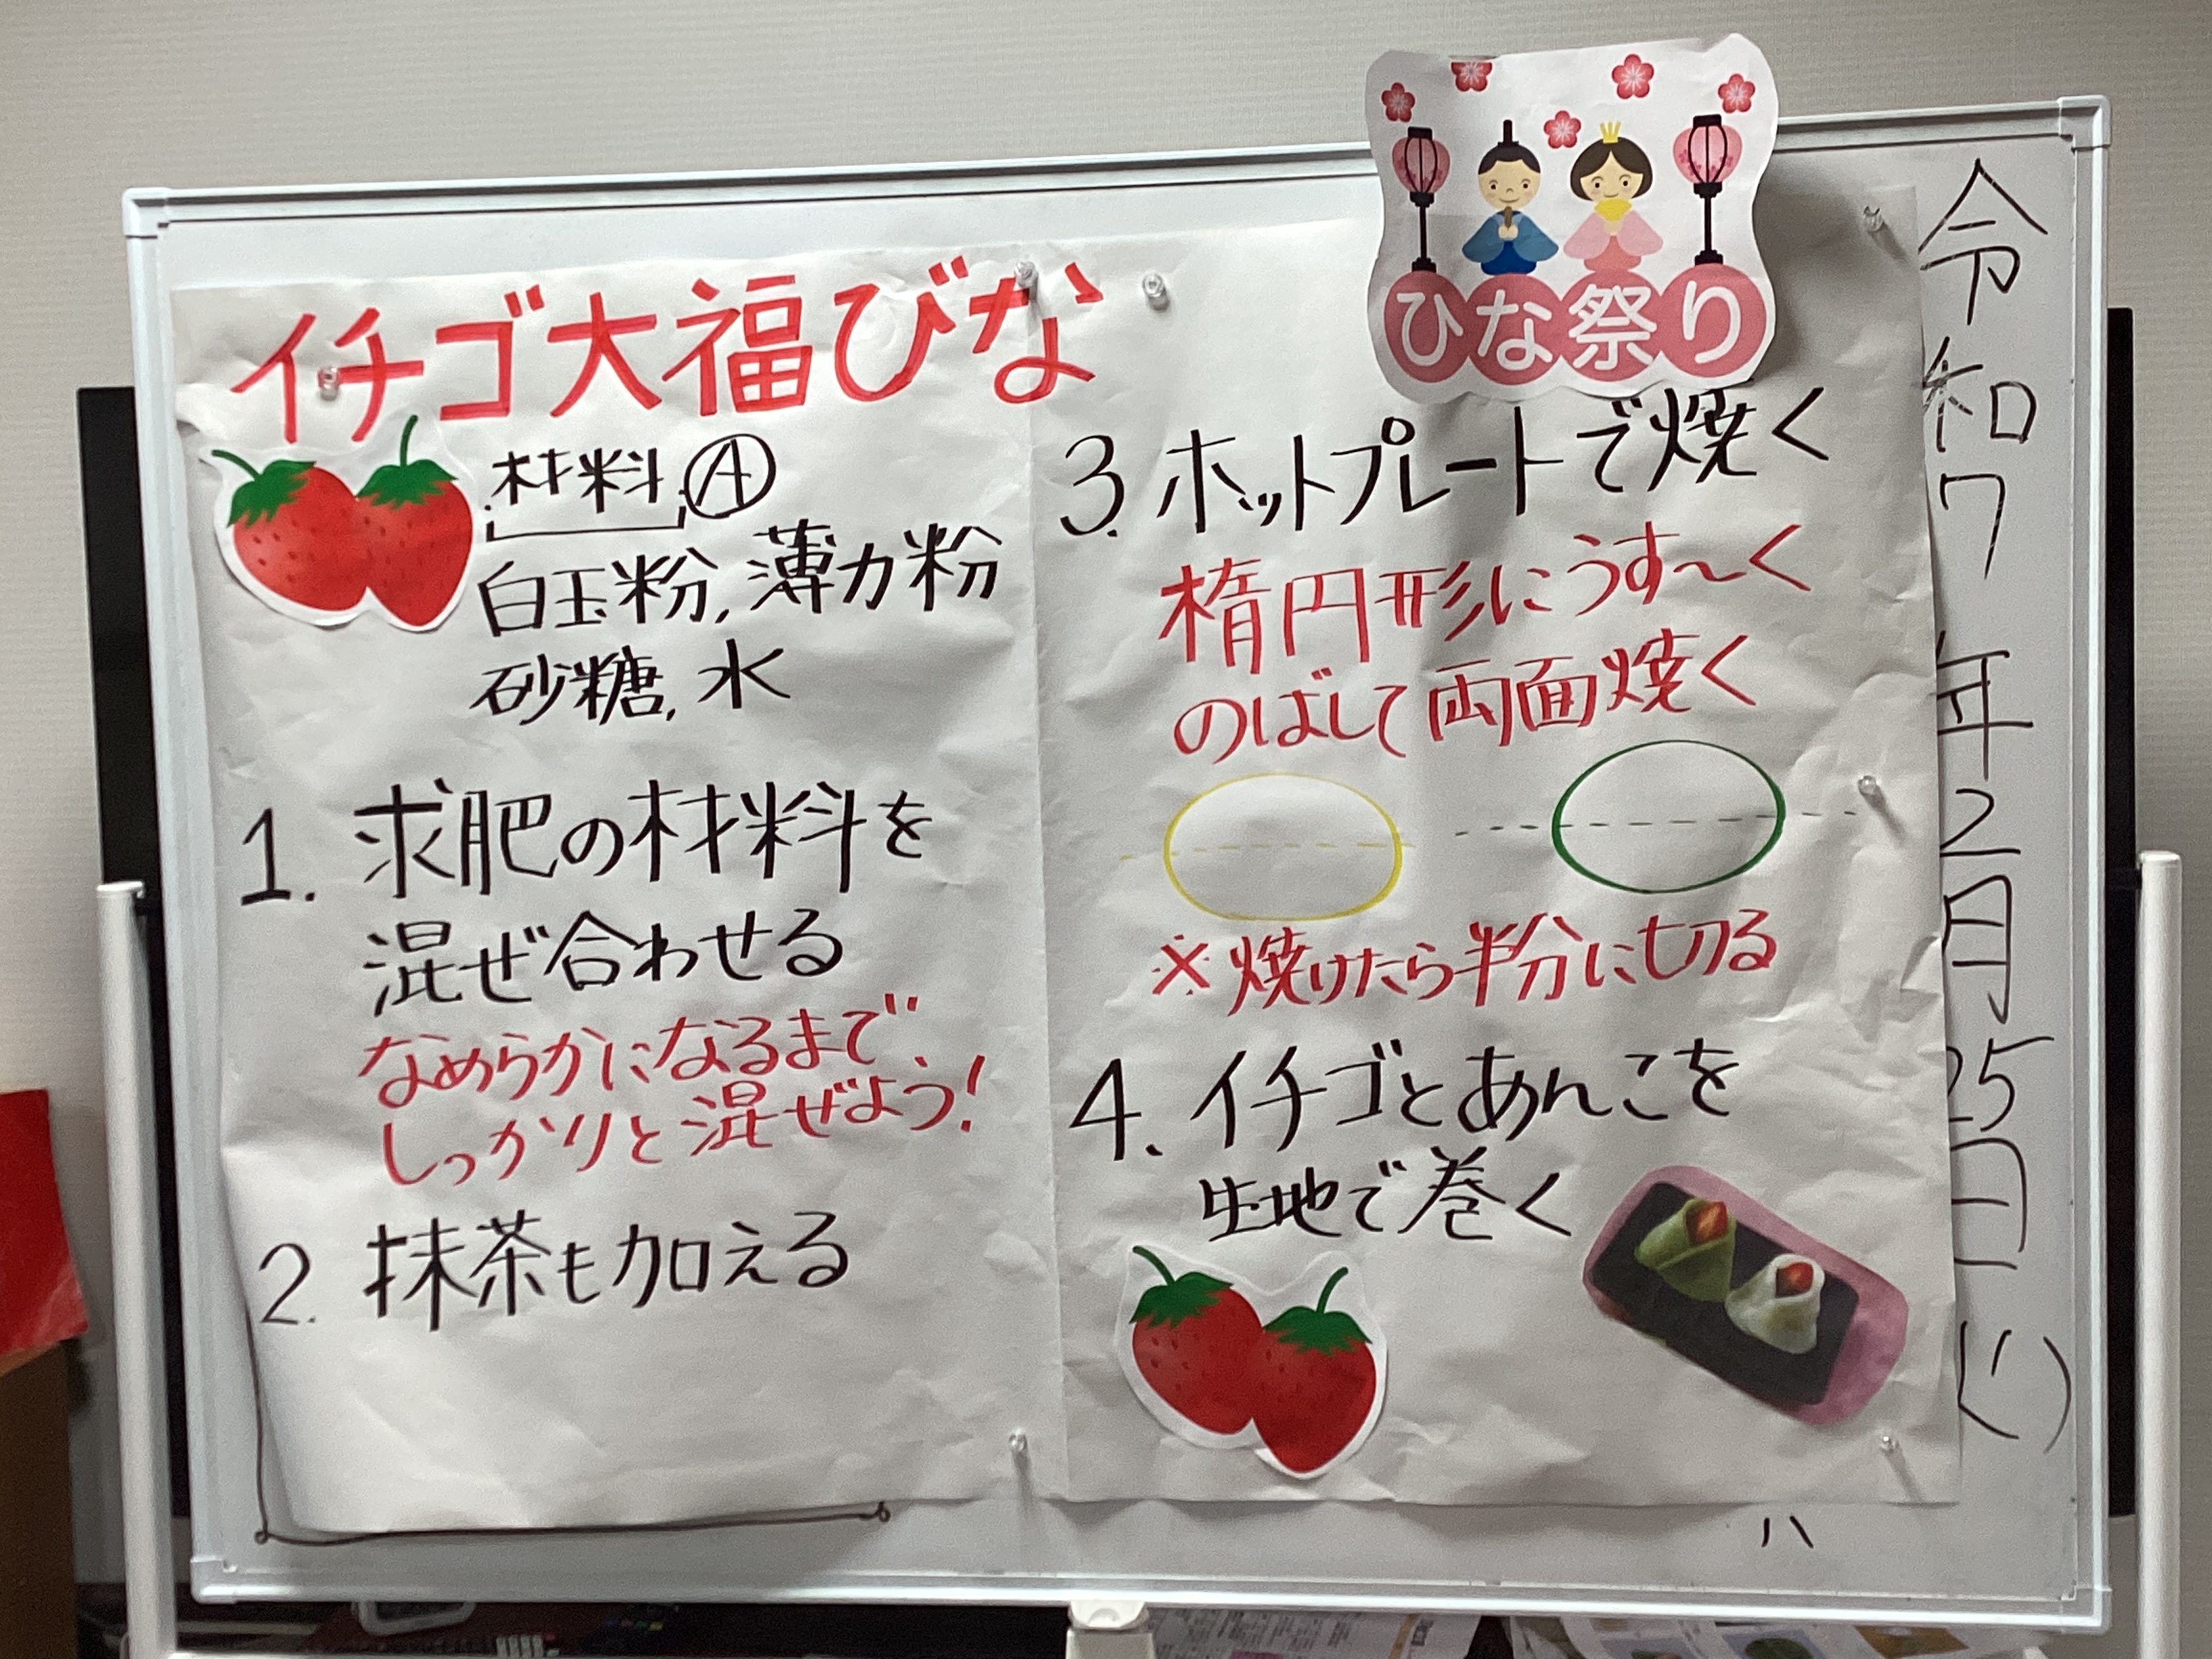 イチゴ大福びな
材料Ⓐ
白玉粉, 薄力粉
砂糖, 水
1. 求肥の材料を
混ぜ合わせる
なめらかになるまで、
しっかりと混ぜよう!
2. 抹茶も加える
ひな祭り
3. ホットプレートで焼く
楕円形にうす〜く
のばして両面焼く
※焼けたら半分に切る
4. イチゴとあんこを
生地で巻く
令和7年2月25日